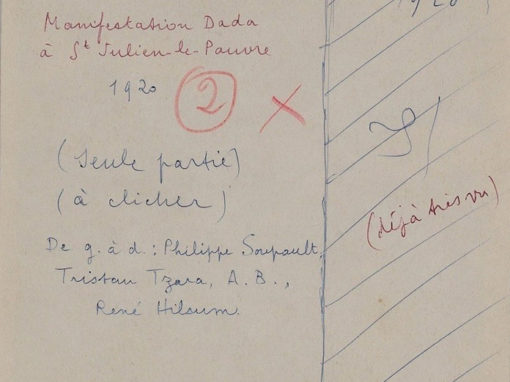 Manifestation Dada
à St Julien-le-Pauvre
1920
2
(seule partie)
(à clicher)
De g. à d. : Philippe Soupault,
Tristan Tzara, A.B.,
René Hilsum.
1920
(déjà très vu)